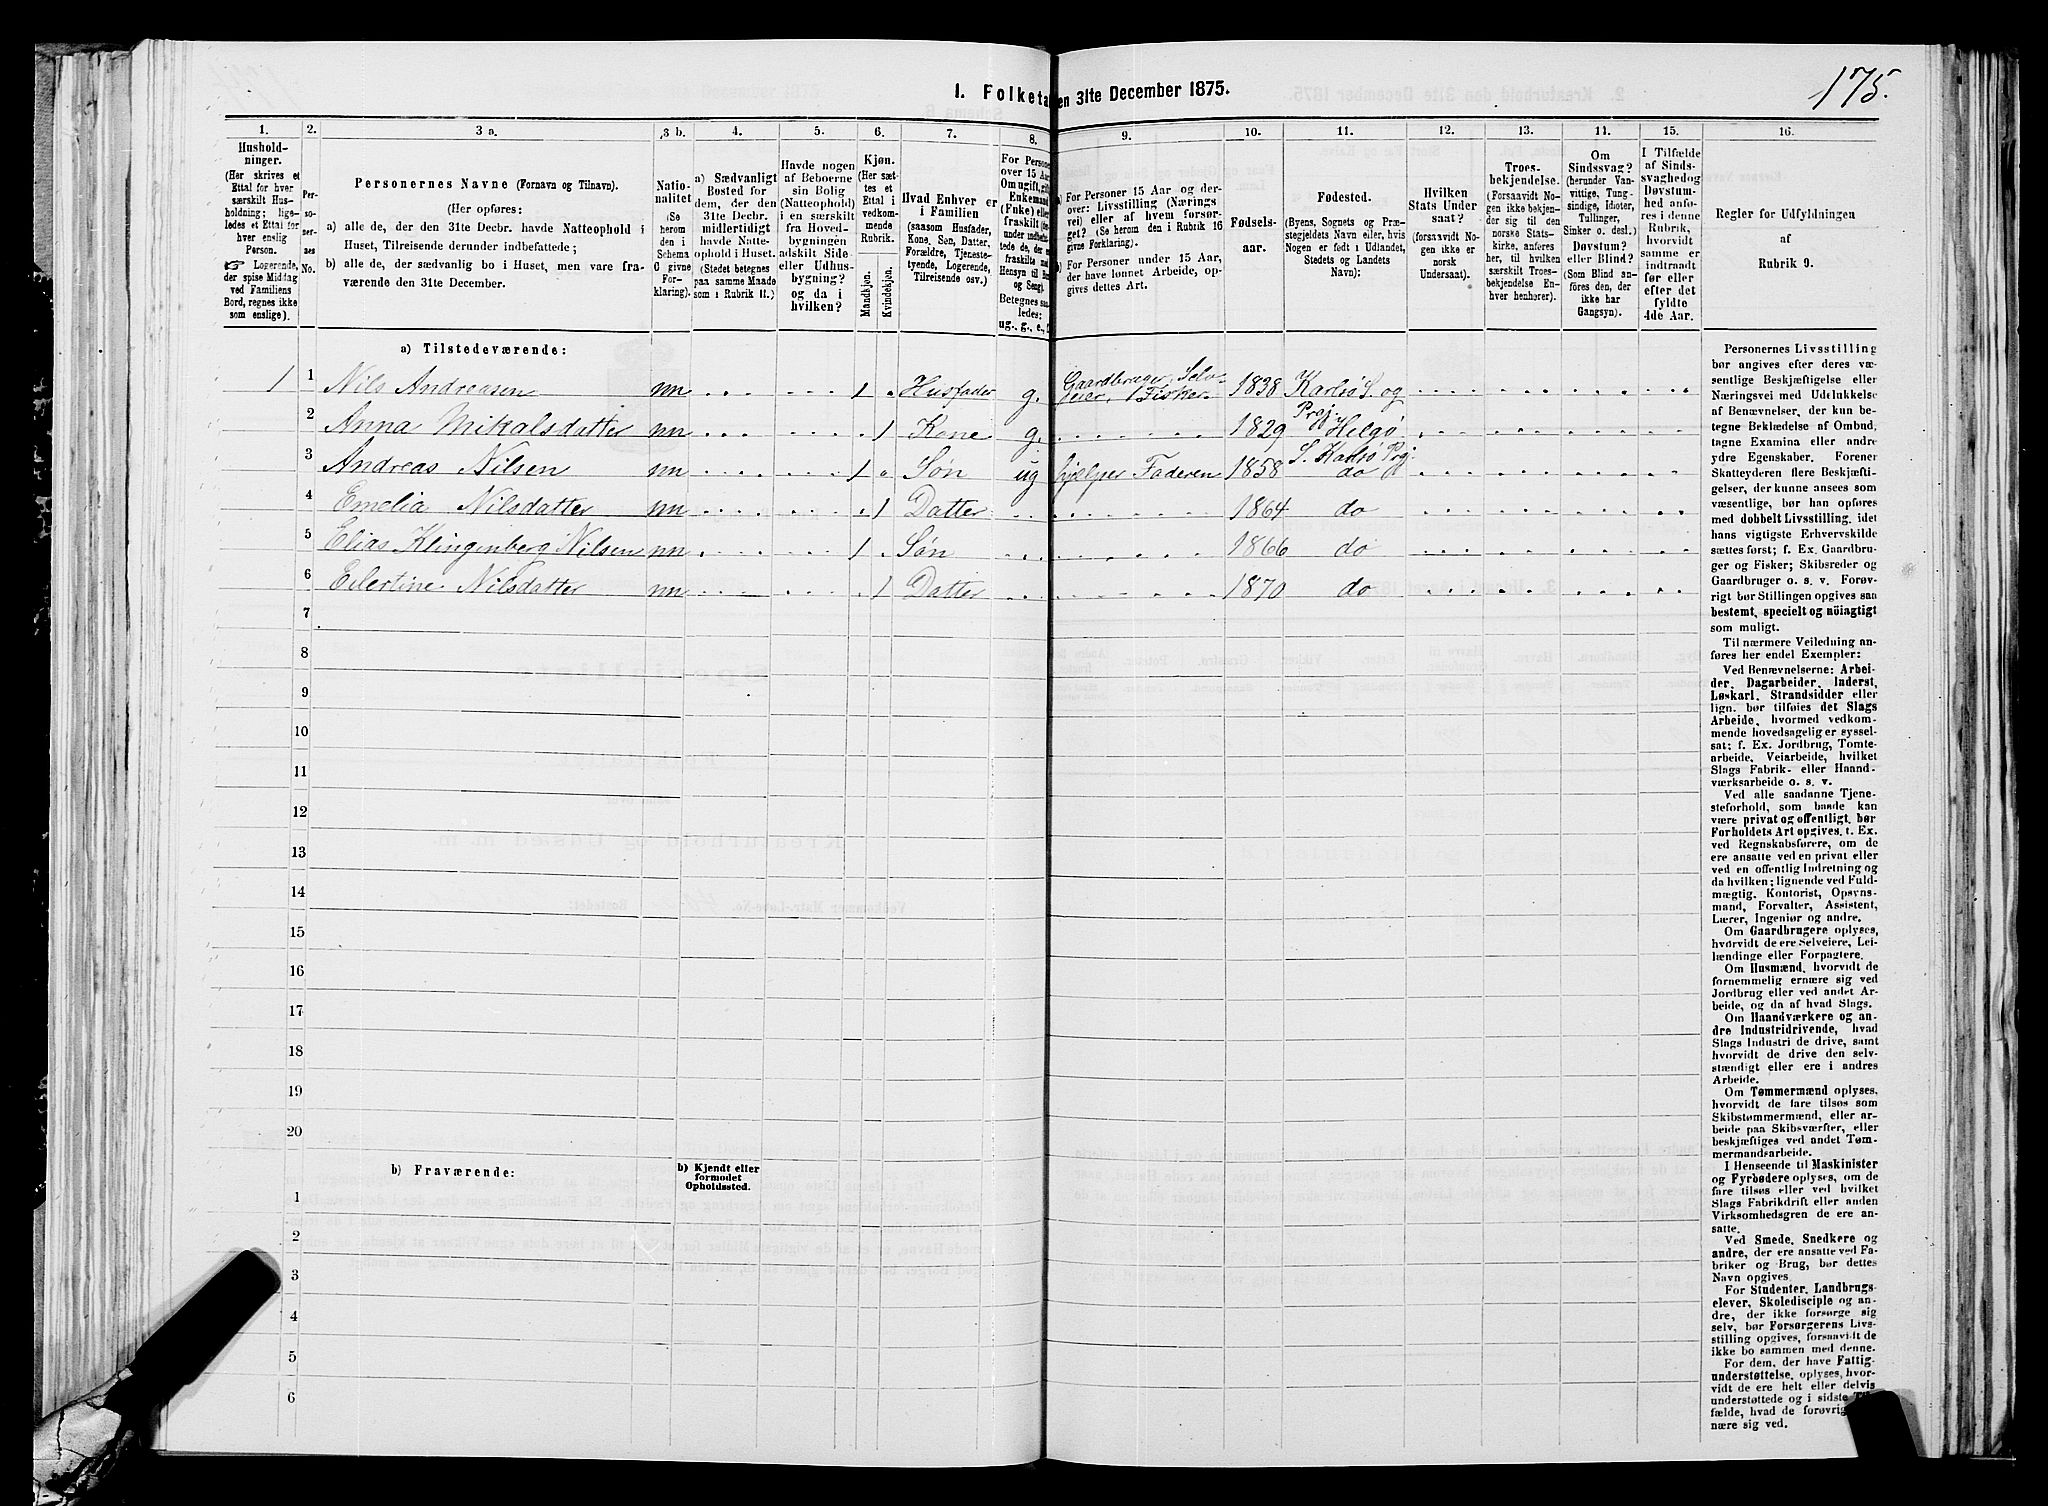 175.
I. Folketa en 31te December 1875.
1. 2. 3 a. 3 b. 4. 5. 6. 7. 8. 9. 10. 11. 12. 13. 14. 15. 16.
Hushold-
ninger.
(Her skrives et
Ettal for hver
særskilt Hus-
holdning; lige-
ledes et Ettal for
hver enslig
Person.
☞ Logerende,
der spise Middag
ved Familiens
Bord, regnes ikke
som enslige).
Per-
so-
ner-
nes
No.
Personernes Navne (Fornavn og Tilnavn).
(Her opføres:
a) alle de, der den 31te Decbr. havde Natteophold i
Huset, Tilreisende derunder indbefattede;
b) alle de, der sædvanlig bo i Huset, men vare fra-
værende den 31te December.
Natio-
nalitet
(Se
herom
den i
Schema
C givne
For-
klaring).
a) Sædvanligt
Bosted for
dem, der den
31te Decbr.
midlertidigt
havde Natte-
ophold i Huset.
(Stedet betegnes
paa samme Maade
som i Rubrik 11.)
Havde nogen
af Beboerne
sin Bolig
(Natteophold)
i en særskilt
fra Hoved-
bygningen
adskilt Side-
eller Udhus-
bygning?
og da i
hvilken?
Kjøn.
(Her sæt-
tes et
Ettal i
vedkom-
mende
Rubrik.
Mandkjøn.
Kvindekjøn.
Hvad Enhver er
i Familien
(saasom Husfader,
Kone, Søn, Datter,
Forældre, Tjeneste-
tyende, Logerende,
Tilreisende osv.)
For Persone
over 15 Aar
Om ugift, gift
Enkemand
(Fnke) eller
fraskilt
under indbefat-
tede de, der
fraskilte med
Hensyn til Bo
og Seng).
Betegnes saa
ledes:
ug., g., e.,
a) For Personer 15 Aar og der-
over: Livsstilling (Nærings
vei) eller af hvem forsør-
get? (Se herom den i Rubrik 16
givne Forklaring).
b) For Personer under 15 Aar,
der have lønnet Arbeide, op-
gives dettes Art.
Fødsels-
aar.
Fødested.
(Byens, Sognets og Præ-
stegjeldets Navn eller, hvis
Nogen er født i Udlandet,
Stedets og Landets
Navn);
Hvilken
Stats Under
saat?
(forsaavidt No-
gen ikke er
norsk
Undersaat).
Troes-
bekjendelse.
(Forsaavidt No-
gen ikke bekjen-
der sig til den
norske Stats-
kirke, anføres
her, til hvilken
særskilt Troes-
bekjendelse En-
hver henhører).
Om
Sindssvag?
(herunder Van-
vittige, Tung-
sindige, Idioter,
Tullinger,
Sinker o. desl.)
Døvstum?
eller Blind?
(Som Blind an-
føres den, der
ikke har
Gangsyn).
I Tilfælde
af Sinds-
svaghedog
Døvstum-
hed anfø-
res i denne
Rubrik,
hvorvidt
samme er
indtraadt
før eller
efter det
fyldte
4de Aar.
Regler for Udfyldningen
af
Rubrik 9.
a) Tilstedeværende:
1 1 Nils Andreasen nn 1 Husfader g. Gaardbruger, Selv-
eier, Fisker 1838 Karlsø S. og
Prgj.
2 Anna Mikalsdatter nn 1 Kone g. 1829 Helgø
S. Karlsø Prgj.
3 Andreas Nilsen nn 1 Søn ug hjælper Faderen 1858 do
4 Emelia Nilsdatter nn 1 Datter 1864 do
5 Elias Klingenberg Nilsen nn 1 Søn 1866 do
6 Eilertine Nilsdatter nn 1 Datter 1870 do
7
8
9
10
11
12
13
14
15
16
17
18
19
20
b) Fraværende:
b) Kjendt eller
formodet
Opholdssted.
1
2
3
4
5
6
Personernes Livsstilling
bør angives efter deres væ-
sentlige Beskjæftigelse eller
Næringsvei med Udelukkelse
af Benævnelser, der kun be-
tegne Beklædelse af Ombud,
tagne Examina eller andre
ydre Egenskaber. Forener
Skatteyderen flere Beskjæfti-
gelser, der kunne ansees som
væsentlige, bør han opføres
med dobbelt Livsstilling, idet
hans vigtigste Erhvervskilde
sættes først; f. Ex. Gaardbru-
ger og Fisker; Skibsreder og
Gaardbruger o. s. v. Forøv-
rigt bør Stillingen opgives saa
bestemt, specielt og nöiagtigt
som muligt.
Til nærmere Veiledning an-
føres her endel Exempler:
Ved Benævnelserne: Arbei-
der, Dagarbeider, Inderst,
Løskarl, Strandsidder eller
lign. bør tilføies det Slags
Arbeide, hvormed vedkom-
mende hovedsagelig er syssel-
sat; f. Ex. Jordbrug, Tomte-
arbeide, Veiarbeide, hvilket
Slags Fabrik- eller Haand-
værksarbeide o. s. v.
Ved alle saadanne Tjene-
steforhold, som baade kan
være privat og offentligt, bør
Forholdets Art opgives, t. Ex.
ved Regnskabsførere, om de
ere ansatte ved en privat eller
ved en offentlig Indretning og
da hvilken; lignende ved Fuld-
mægtig, Kontorist, Opsyns-
mand, Forvalter, Assistent,
Lærer, Ingeniør og andre.
Om Gaardbrugere oplyses,
hvorvidt de ere Selveiere, Lei-
lændinge eller Forpagtere.
Om Husmænd, hvorvidt de
fornemmelig ernære sig ved
Jordbrug eller ved andet Ar-
beide, og da af hvad Slags.
Om Haandværkere og an-
dre Industridrivende, hvad
Slags Industri de drive, samt
hvorvidt de drive den selv-
stændigt eller ere i andres
Arbeide.
Om Tømmermænd oplyses,
hvorvidt de fare tilsøs som
Skibstømmermænd, eller ar-
beide paa Skibsværfter, eller
beskjæftiges ved andet Tøm-
mermandsarbeide.
I Henseende til Maskinister
og Fyrbødere oplyses, om de
fare tilsøs eller ved hvilket
Slags Fabrikdrift eller anden
Virksomhedsgren de ere an-
satte.
Ved Smede, Snedkere og
andre, der ere ansatte ved Fa-
briker og Brug, bør dettes
Navn opgives.
For Studenter, Landbrugs-
elever, Skoledisciple og an-
dre, der ikke forsørge sig
selv, bør Forsørgerens Livs-
stilling opgives, forsaavidt de
ikke bo sammen med denne.
For dem, der have Fattig-
understøttelse, oplyses, hvor-
vidt de ere helt eller delvis
understøttede og i sidste
fælde, hvad de forøvrig
nære sig ved.